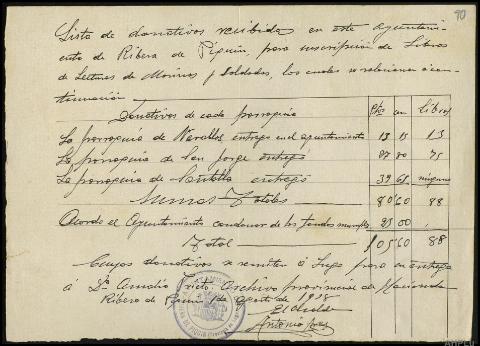 70
Lista de donativos recibidos en este ayuntami-
ento de Ribera de Piquin, para suscripción de Libros
de Lectura de Marinos y Soldados, los cuales se relacionan a con-
tinuación
Donativos de cada parroquia Ptas cen Libros
La parroquia de Navallos entrego en el ayuntamiento 13 15 13
La parroquia de San Jorge entregó 27 80 75
La parroquia de Santalla entregó 39 65 ninguno
Sumas Totales 80 60 88
Acordo el Ayuntamiento con donar de los fondos 25 00
Total 105 60 88
Cuyos donativos se remiten á Lugo para su entrega
á Dª Amalia Prieto Archivo provincial de Hacienda
Ribera de Piquin 1 de agosto de 1938
El Alcalde
Antonio